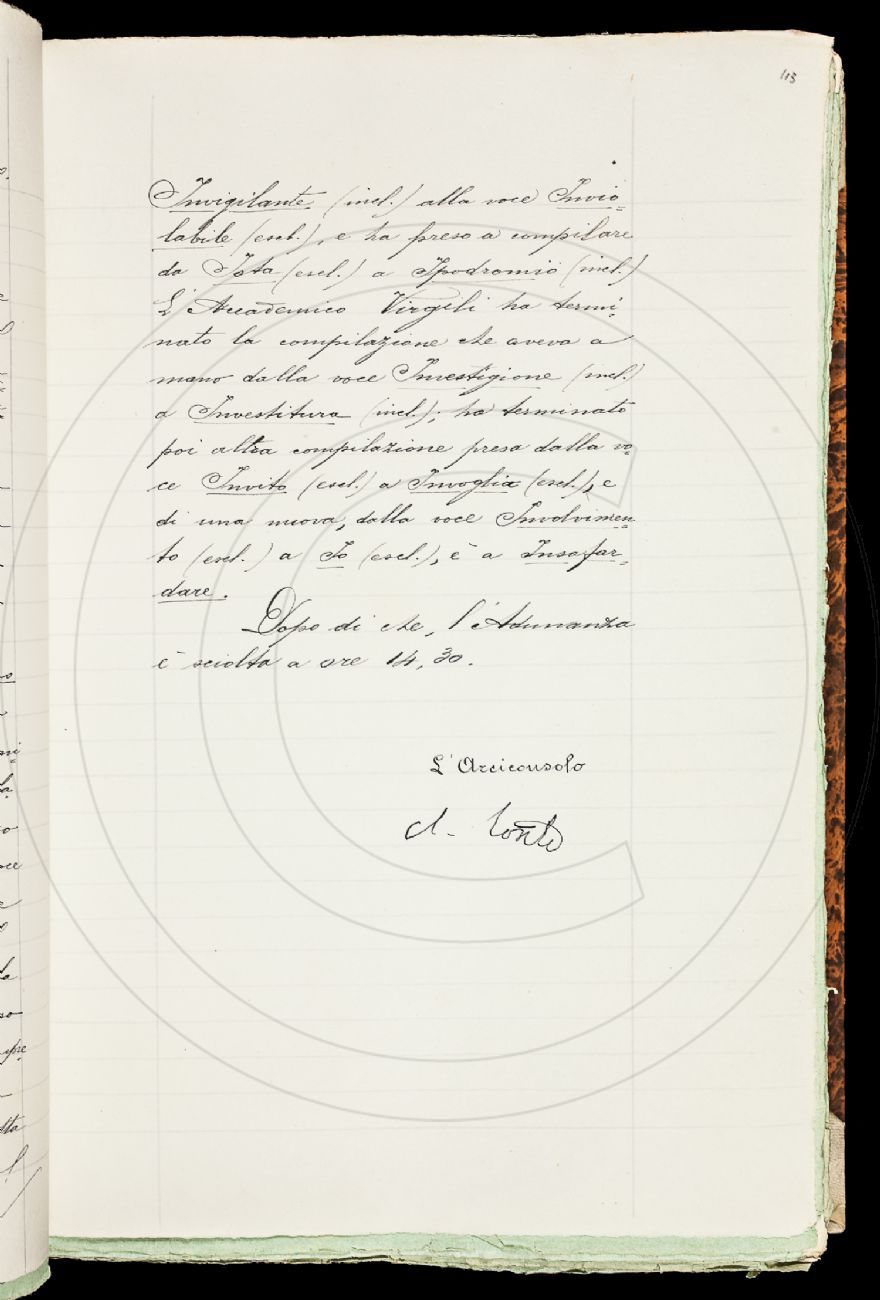 113
Invigilante (incl.) alla voce Invio=
labile (escl.), e ha preso a compilare
da Iota (escl.) a Ipodromio (incl.)
L'Accademico Virgili ha termi=
nato la compilazione che aveva a
mano dalla voce Investigione (incl.)
a Investitura (incl.); ha terminato
poi altra compilazione presa dalla vo=
ce Invito (escl.) a Invoglia (escl.), e
di una nuova, dalla voce Involvimen=
to (escl.) a Io (escl.), e a Insafar=
dare.
Dopo di che, l'Adunanza
è sciolta a ore 14,30.
L'Arciconsolo
A. Conti